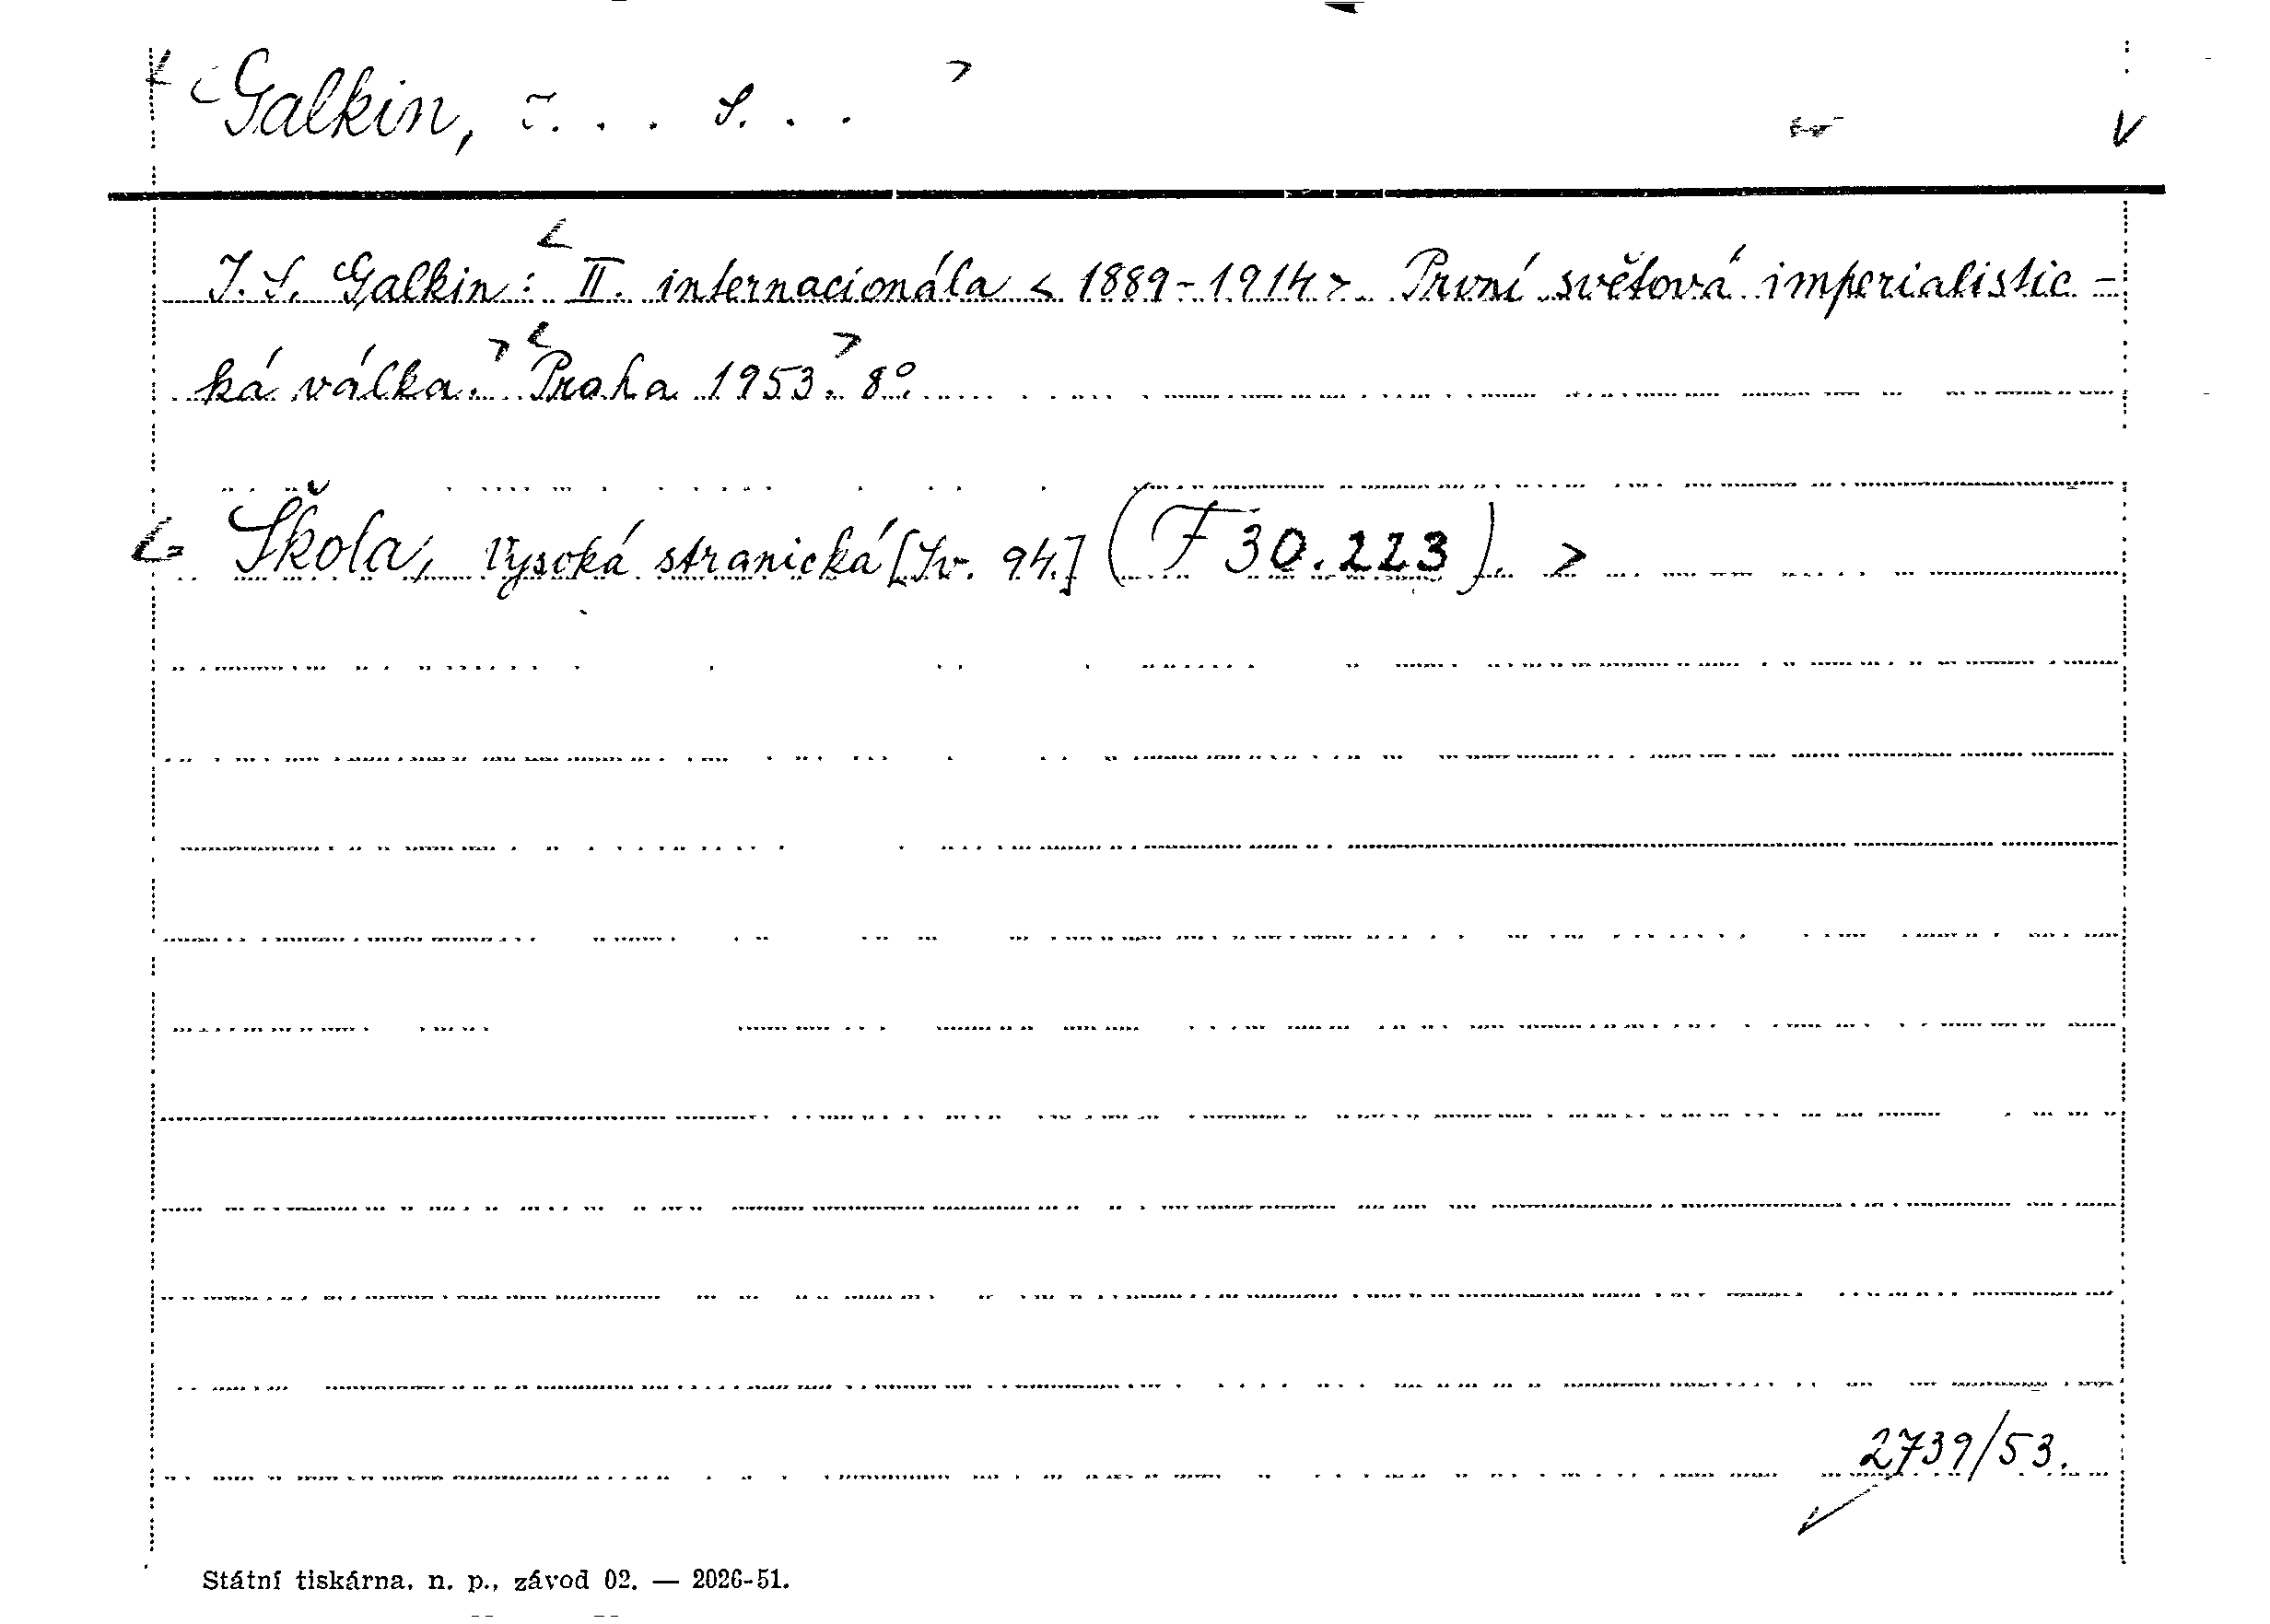 Galkin, I. . . S. . .
I. S. Galkin: II. internacionála < 1889-1914 > První světová imperialistic-
ká válka. Praha 1953. 8°.
Škola, Vysoká stranická [Sv. 94.] (F 30.223).
2739/53.
Státní tiskárna, n. p., závod 02. — 2026-51.